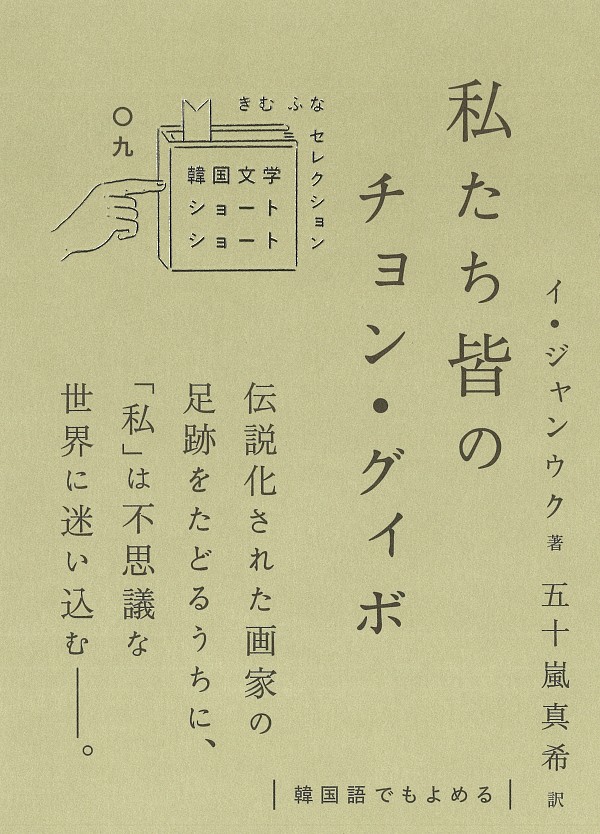 イ・ジャンウク 著 五十嵐真希 訳
私たち皆の
チョン・グイボ
きむ ふな
セレクション
韓国文学
ショート
ショート
〇九
伝説化された画家の
足跡をたどるうちに、
「私」は不思議な
世界に迷い込む――。
韓国語でもよめる